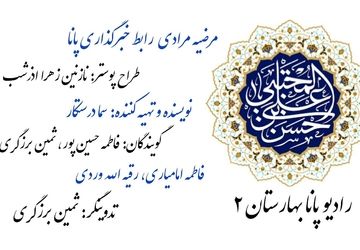 مرضیه مرادی رابط خبرگذاری پانا
طراح پوستر: نازنین زهرا اذرشب
نویسنده و تهیه کننده: سما درستکار
گویندگان: فاطمه حسین پور، ثمین برزگری
فاطمه امامیاری، رقیه الله وردی
تدوینگر: ثمین برزگری
الحسن بن علی المجتبی
رادیو پانا بهارستان ۲